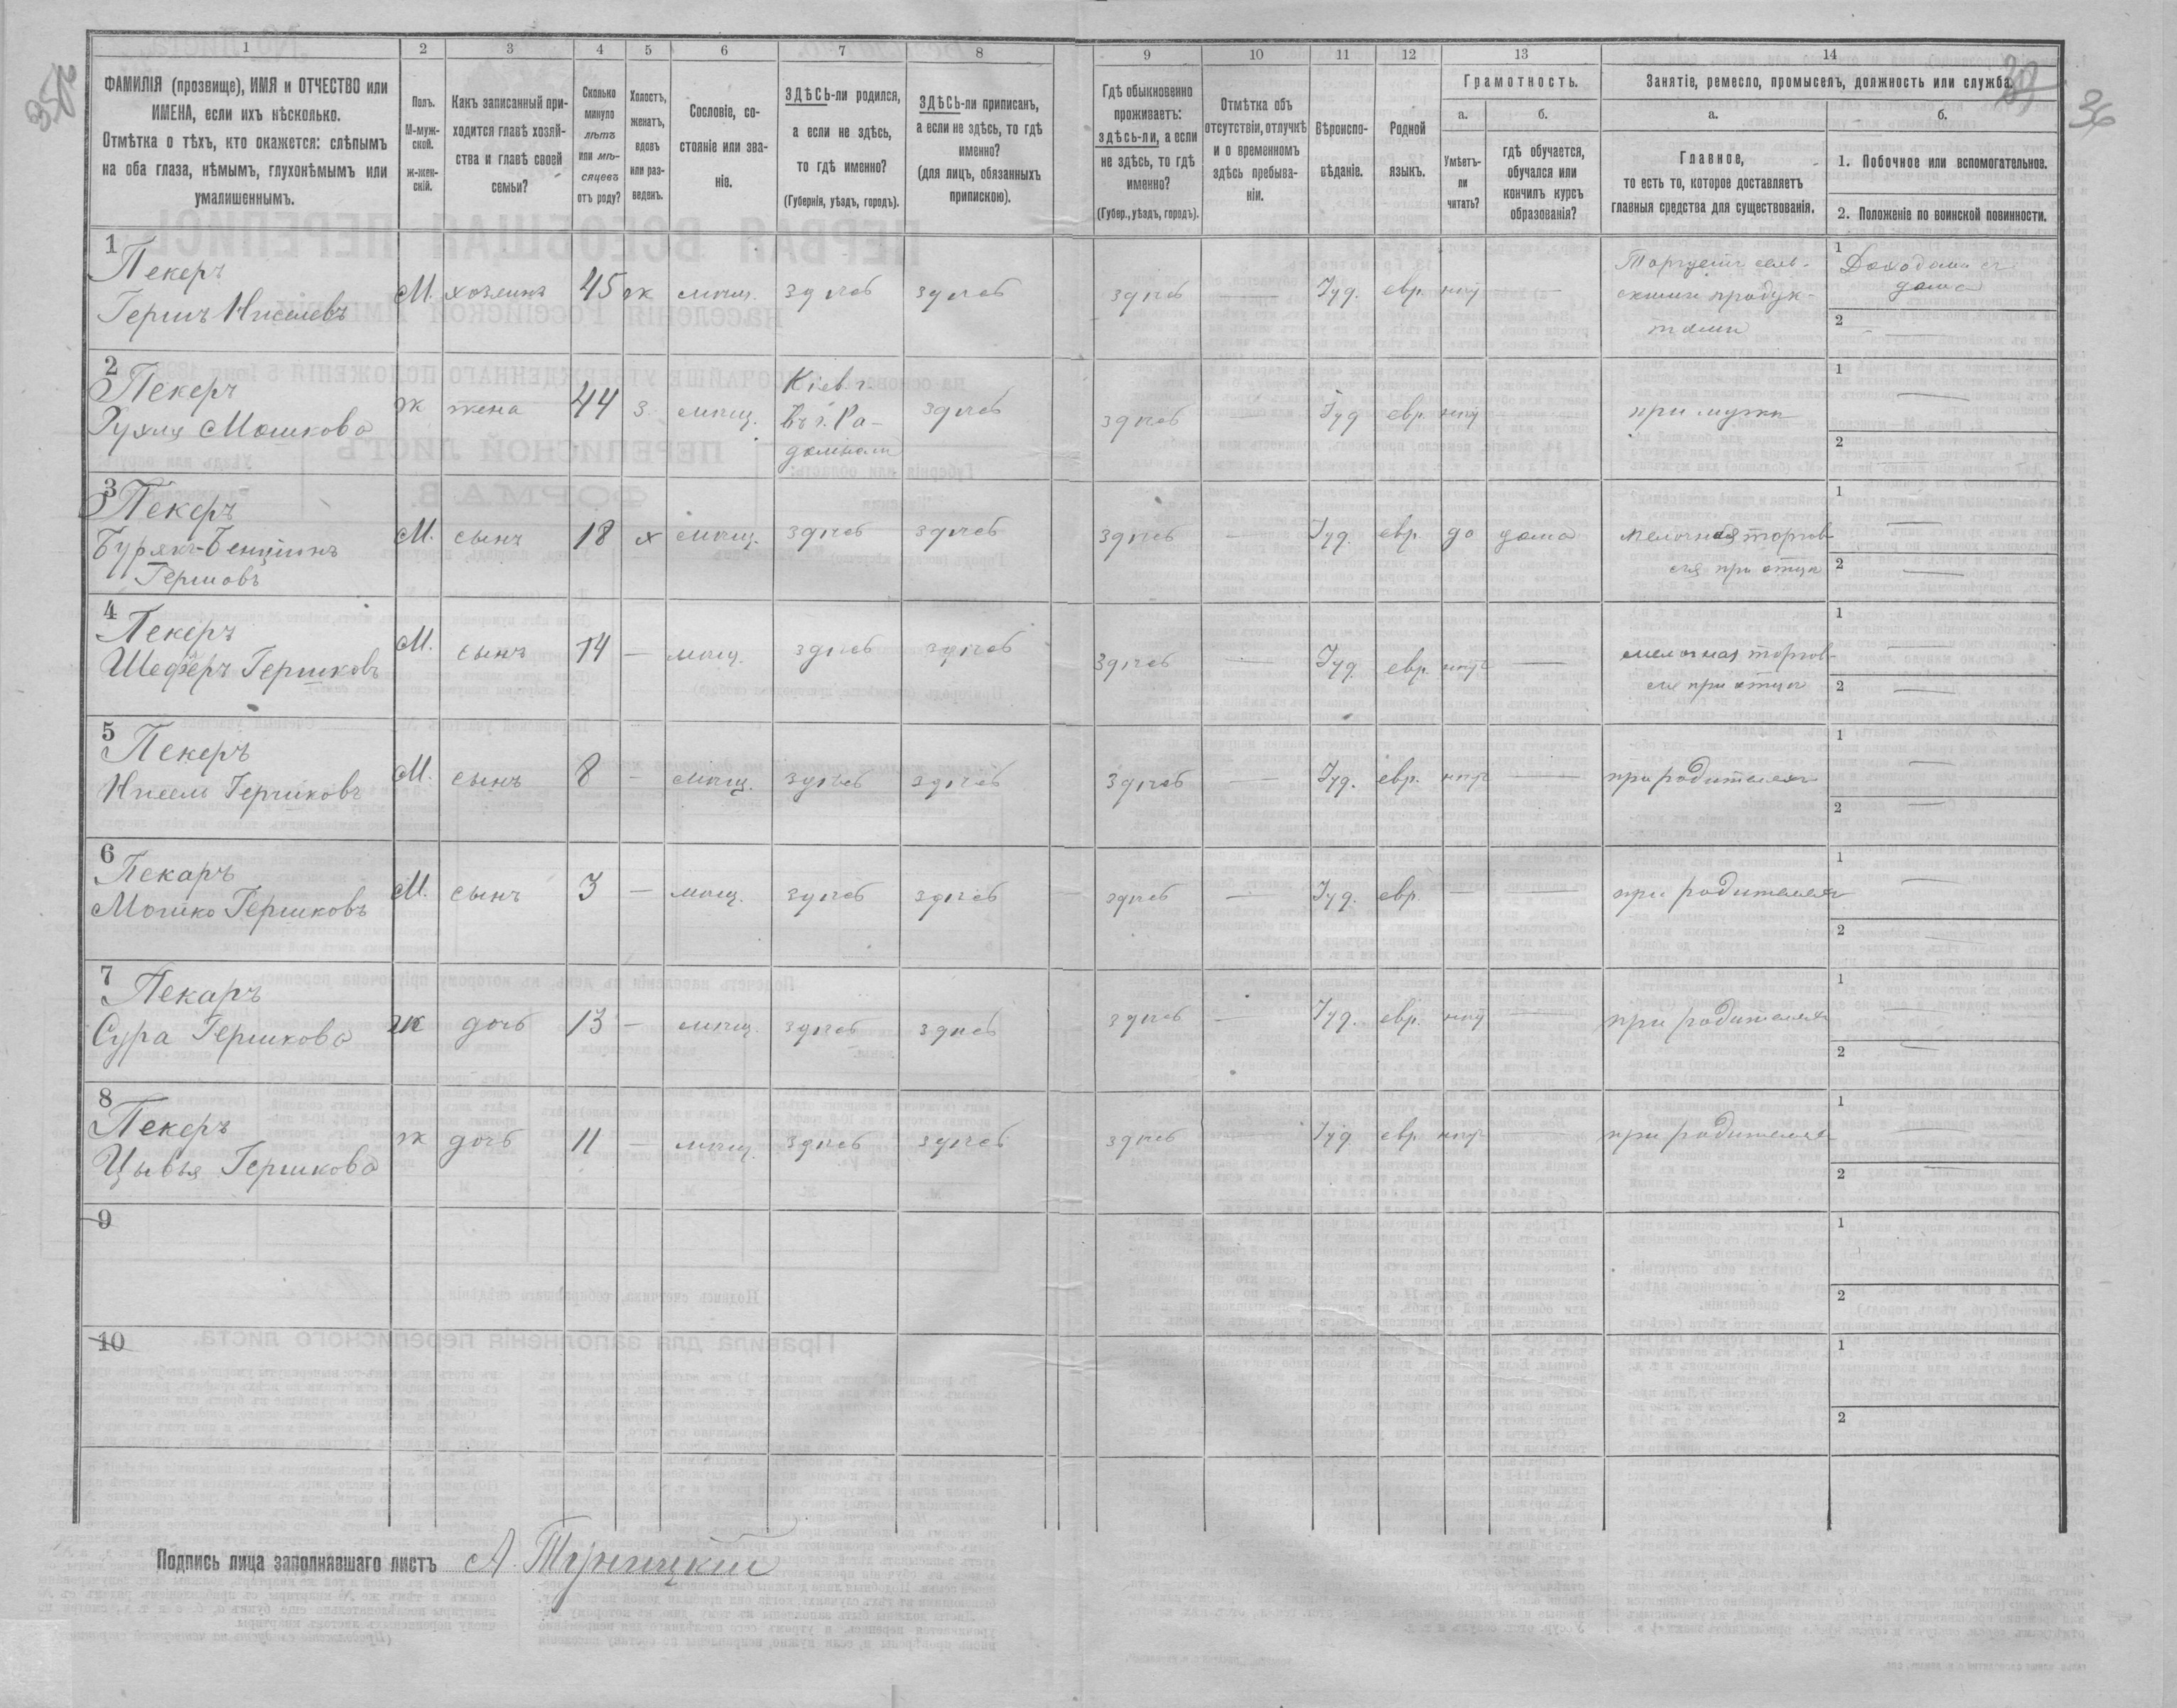 1 2 3 4 5 6 7 8 9 10 11 12 13 14
ФАМИЛІЯ (прозвище), ИМЯ и ОТЧЕСТВО или
ИМЕНА, если ихъ нѣсколько.
Отмѣтка о тѣхъ, кто окажется: слѣпымъ
на оба глаза, нѣмымъ, глухонѣмымъ или
умалишеннымъ.
Полъ.
М-муж-
ской.
Ж-жен-
скій.
Какъ записанный при-
ходится главѣ хозяй-
ства и главѣ своей
семьи?
Сколько
минуло
лѣтъ
или мѣ-
сяцевъ
отъ роду?
Холостъ,
женатъ,
вдовъ
или раз-
веденъ.
Сословіе, со-
стояніе или зва-
ніе.
ЗДѢСЬ-ли родился,
а если не здѣсь,
то гдѣ именно?
(Губернія, уѣздъ, городъ).
ЗДѢСЬ-ли приписанъ,
а если не здѣсь, то гдѣ
именно?
(для лицъ, обязанныхъ
припискою).
Гдѣ обыкновенно
проживаетъ:
здѣсь-ли, а если
не здѣсь, то гдѣ
именно?
(Губер., уѣздъ, городъ).
Отмѣтка объ
отсутствіи, отлучкѣ
и о временномъ
здѣсь пребыва-
ніи.
Вѣроиспо-
вѣданіе.
Родной
языкъ.
Грамотность.
а.
Умѣетъ-
ли
читать?
б.
гдѣ обучается,
обучался или
кончилъ курсъ
образованія?
Занятіе, ремесло, промыселъ, должность или служба.
а.
Главное,
то есть то, которое доставляетъ
главныя средства для существованія.
б.
1. Побочное или вспомогательное.
2. Положеніе по воинской повинности.
36
1
Пекеръ
Гершъ Ниселевъ
М. хозяинъ 45 ж мѣщ. здѣсь здѣсь здѣсь — Іуд. евр. нѣтъ —
Торгуетъ сель-
скими продук-
тами
1 Доходами съ
дома
2 —
2
Пекеръ
Рухля Мошкова
ж жена 44 з. мѣщ.
Кіев г.
Въ г. Ра-
домыслѣ
здѣсь здѣсь Іуд евр. нѣтъ —
при мужѣ
1 —
2 —
3
Пекеръ
Бурякъ-Бенціонъ
Гершовъ
М. сынъ 18 х мѣщ. здѣсь здѣсь здѣсь — Іуд. евр. да дома
мелочная торгов-
ля при отцѣ
1 —
2 —
4
Пекеръ
Шеферъ Гершковъ
М. сынъ 14 — мѣщ. здѣсь здѣсь здѣсь — Іуд. евр. нѣтъ —
мелочная торгов-
ля при отцѣ
1 —
2 —
5
Пекеръ
Нисель Гершковъ
М. сынъ 8 — мѣщ. здѣсь здѣсь здѣсь — Іуд. евр. нѣтъ —
при родителяхъ
1 —
2 —
6
Пекаръ
Мошко Гершковъ
М. сынъ 3 — мѣщ. здѣсь здѣсь здѣсь — Іуд. евр. — —
при родителяхъ
1 —
2 —
7
Пекаръ
Сура Гершкова
ж дочь 13 — мѣщ. здѣсь здѣсь здѣсь — Іуд. евр. нѣтъ —
при родителяхъ
1 —
2 —
8
Пекеръ
Цывья Гершкова
ж дочь 11 — мѣщ. здѣсь здѣсь здѣсь — Іуд. евр. нѣтъ —
при родителяхъ
1 —
2 —
9
1
2
10
1
2
Подпись лица заполнявшаго листъ А. Турицкій